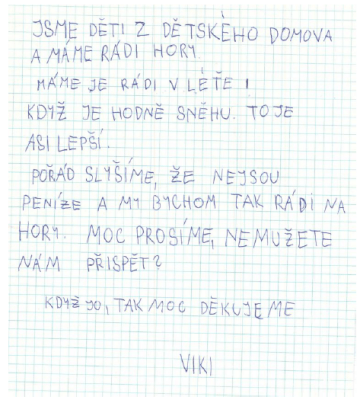 JSME DĚTI Z DĚTSKÉHO DOMOVA
A MÁME RÁDI HORY.
MÁME JE RÁDI V LÉTĚ I
KDYŽ JE HODNĚ SNĚHU. TO JE
ASI LEPŠÍ.
POŘÁD SLYŠÍME, ŽE NEJSOU
PENÍZE A MY BYCHOM TAK RÁDI NA
HORY. MOC PROSÍME, NEMUŽETE
NÁM PŘISPĚT?
KDYŽ JO, TAK MOC DĚKUJEME
VIKI